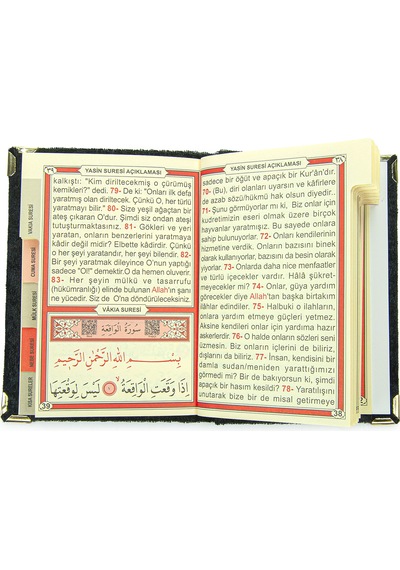 YASİN SURESİ AÇIKLAMASI
٣٨
sadece bir öğüt ve apaçık bir Kur'ân'dır.
70- (Bu), diri olanları uyarsın ve kâfirlere
de azab sözü/hükmü hak olsun diyedir...
71- Şunu görmüyorlar mı ki, Biz onlar için
kudretimizin eseri olmak üzere birçok
hayvanlar yaratmışız. Bu sayede onlara
sahip bulunuyorlar. 72- Onları kendilerinin
hizmetine verdik. Onların bazısını binek
olarak kullanıyorlar, bazısını da besin olarak
yiyorlar. 73- Onlarda daha nice menfaatler
ve türlü içecekler vardır. Hâlâ şükret-
meyecekler mi? 74- Onlar, güya yardım
görecekler diye Allah'tan başka birtakım
ilâhlar edindiler. 75- Halbuki o ilahların,
onlara yardım etmeye güçleri yetmez.
Aksine kendileri onlar için yardıma hazır
askerlerdir. 76- O halde onların sözleri seni
üzmesin. Biz onların içlerini de biliriz,
dışlarını da biliriz. 77- İnsan, kendisini bir
damla sudan/meniden yarattığımızı
görmedi mi? Bir de bakıyorsun ki, şimdi
apaçık bir hasım kesildi? 78- Yaratılışını
unutarak bize bir de misal getirmeye
38
YASİN SURESİ AÇIKLAMASI
٣٩
kalkıştı: "Kim diriltecekmiş o çürümüş
kemikleri?" dedi. 79- De ki: "Onları ilk defa
yaratmış olan diriltecek. Çünkü O, her türlü
yaratmayı bilir." 80- Size yeşil ağaçtan bir
ateş çıkaran O'dur. Şimdi siz ondan ateşi
tutuşturmaktasınız. 81- Gökleri ve yeri
yaratan, onların benzerlerini yaratmaya
kâdir değil midir? Elbette kâdirdir. Çünkü
o her şeyi yaratandır, her şeyi bilendir. 82-
Bir şeyi yaratmak dileyince O'nun yaptığı
sadece "Ol!" demektir.O da hemen oluverir.
83- Her şeyin mülkü ve tasarrufu
(hükümranlığı) elinde bulunan Allah'ın şanı
ne yücedir. Siz de O'na döndürüleceksiniz.
VÂKIA SURESİ
سُورَةُ الْوَاقِعَةِ
بِسْمِ اللهِ الرَّحْمٰنِ الرَّحِيمِ
اِذَا وَقَعَتِ الْوَاقِعَةُ ۙ ١ لَيْسَ لِوَقْعَتِهَا
39
VAKIA SURESİ
CUMA SURESİ
MÜLK SURESİ
NEBE SURESİ
KISA SURELER